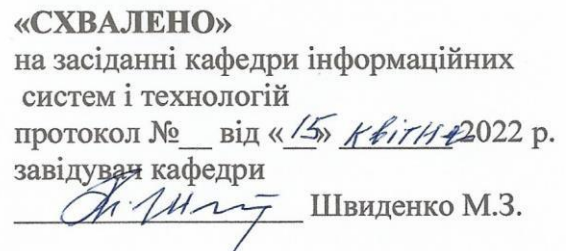 «СХВАЛЕНО»
на засіданні кафедри інформаційних
систем і технологій
протокол №__ від «15» квітня 2022 р.
завідувач кафедри
Швиденко М.З.